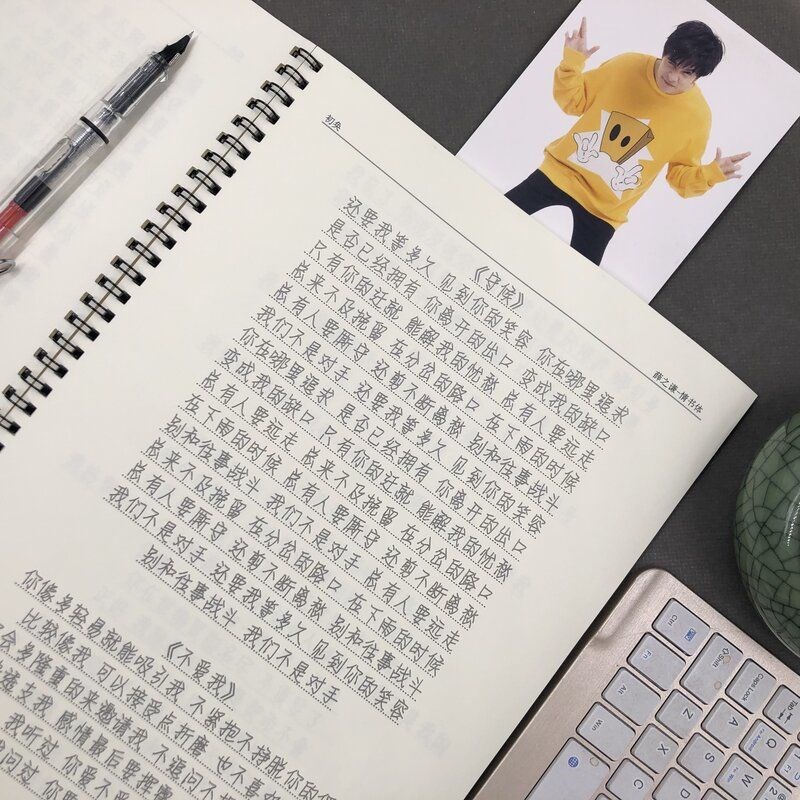 薛之谦·情书体
《守候》
还要我等多久 见到你的笑容 你在哪里追求
是否已经拥有 你离开的出口 变成我的缺口
只有你的迁就 能解我的忧愁 总有人要远走
总来不及挽留 在分岔的路口 在下雨的时候
总有人要厮守 还剪不断离愁 别和往事战斗
我们不是对手 还要我等多久 见到你的笑容
你在哪里追求 是否已经拥有 你离开的出口
变成我的缺口 只有你的迁就 能解我的忧愁
总有人要远走 总来不及挽留 在分岔的路口
在下雨的时候 总有人要厮守 还剪不断离愁
别和往事战斗 我们不是对手 总有人要远走
总来不及挽留 在分岔的路口 在下雨的时候
总有人要厮守 还剪不断离愁 别和往事战斗
我们不是对手 还要我等多久 见到你的笑容
别和往事战斗 我们不是对手
《不爱我》
你像多轻易就能吸引我 不紧抱不挣脱你的
比较像我 可以接受点折磨 也不喜
会多隆重的来邀请我 不追问不
透支我 感情最后要挥
我听过 你爱不
问过 你
Ctrl
Fn
Shift
Alt
Caps Lock
Tab
Win
Z
A
Q
X
S
W
C
D